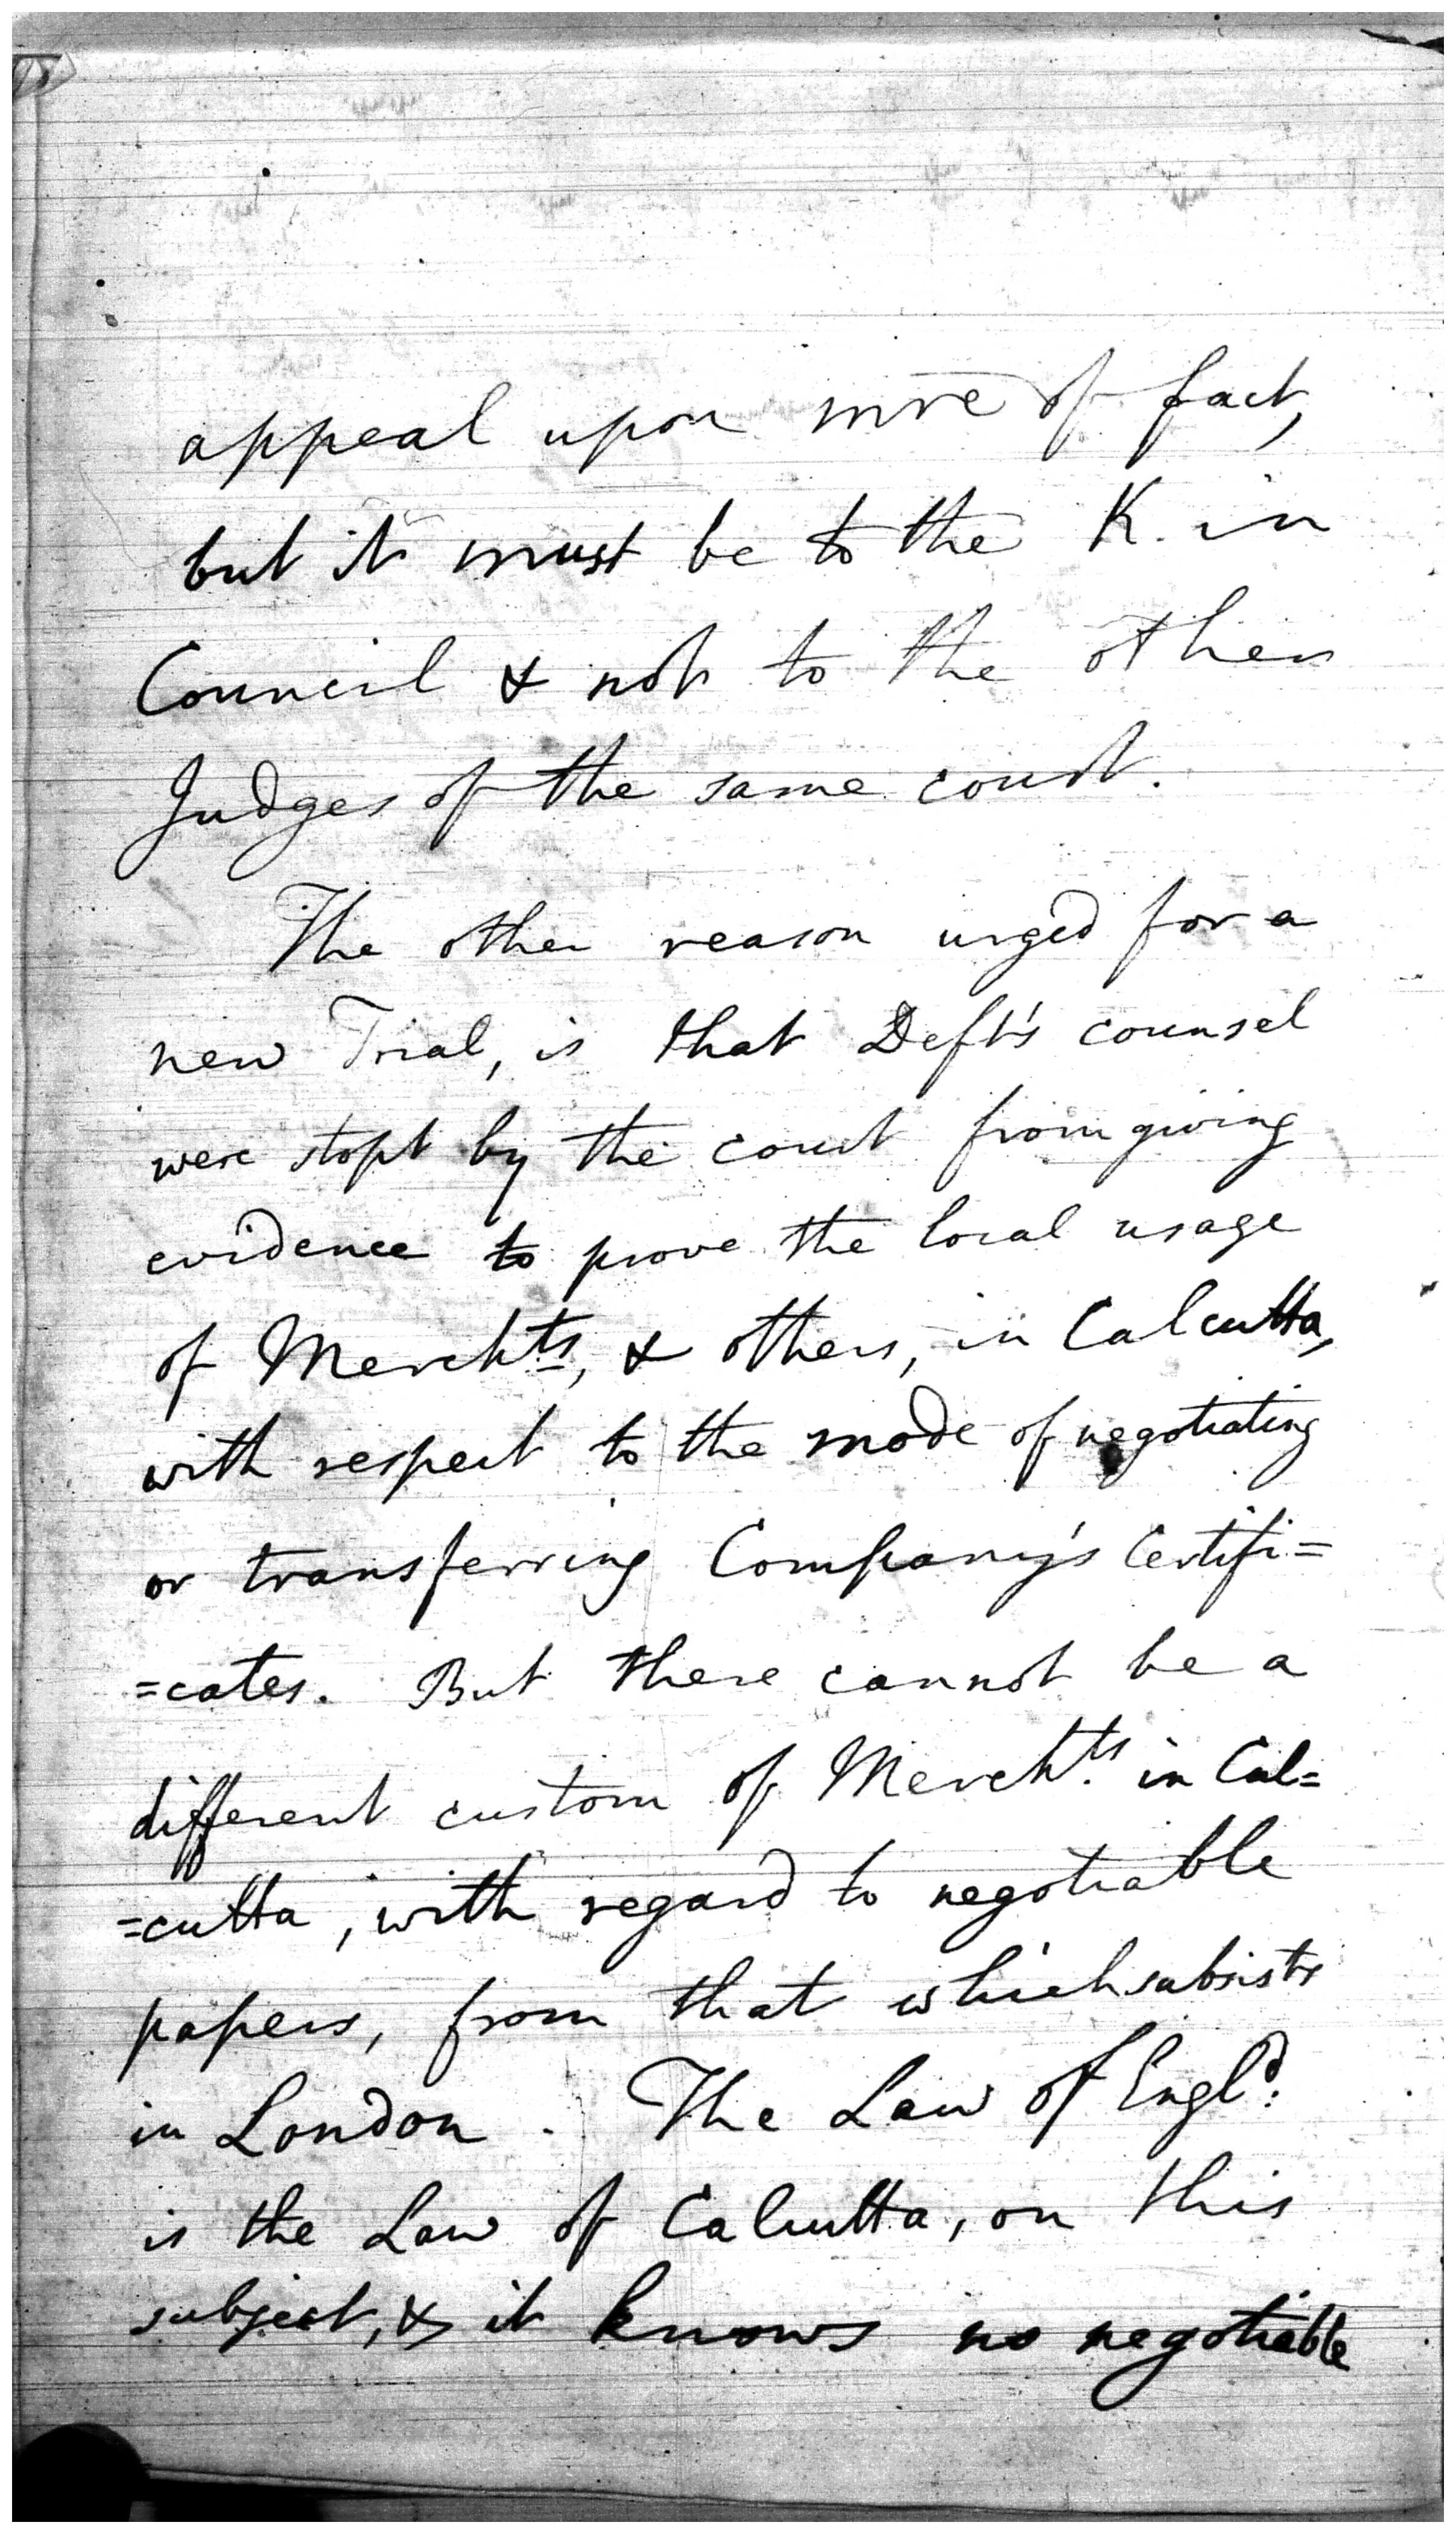 appeal upon more of fact,
but it must be to the K. in
Council & not to the other
Judges of the same court.
The other reason urged for a
new Trial, is that Deft's counsel
were stopt by the court from giving
evidence to prove the local usage
of Merchts, & others, in Calcutta,
with respect to the mode of negotiating
or transferring Company's Certifi=
=cates. But there cannot be a
different custom of Mercht.s in Cal=
=cutta, with regard to negotiable
papers, from that which subsists
in London. The Law of Engld:
is the Law of Calcutta, on this
subject, & it knows no negotiable